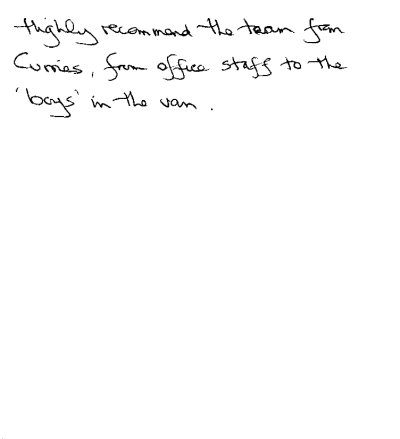 Highly recommend the team from
Curries, from office staff to the
'boys' in the van.